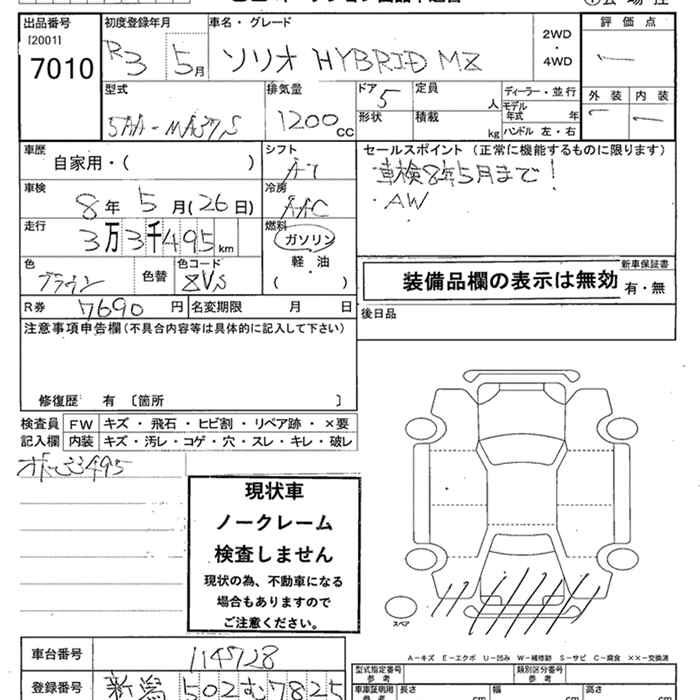 出品番号 初度登録年月 車名・グレード 評価点
[2001]
7010 R3 5月 ソリオ HYBRID MZ 2WD・4WD
型式 排気量 ドア 定員 ディーラー・並行 外装 内装
5AA-MA37S 1200cc 5 人 モデル年式 年
形状 積載 kg ハンドル 左・右
車歴 シフト セールスポイント (正常に機能するものに限ります)
自家用・( ) AT 車検8年5月まで!
車検 冷房 ・AW
8年 5月(26日) AAC
走行 燃料
3万3千495km ガソリン
色 色替 色コード 軽・油 新車保証書
ブラウン ( ) 装備品欄の表示は無効 有・無
R券 7690円 名変期限 月 日 後日品
注意事項申告欄(不具合内容等は具体的に記入して下さい)
修復歴 有 〔箇所 〕
検査員 FW キズ・飛石・ヒビ割・リペア跡・×要
記入欄 内装 キズ・汚レ・コゲ・穴・スレ・キレ・破レ
33495
現状車
ノークレーム
検査しません
現状の為、不動車になる
場合もありますので
ご注意ください。
スペア
A-キズ E-エクボ U-凹み W-補修跡 S-サビ C-腐食 ××-交換済
車台番号 114728 型式指定番号 参考 類別区分番号 参考
登録番号 新潟 502 む 7825 長さ cm 幅 cm 高さ cm